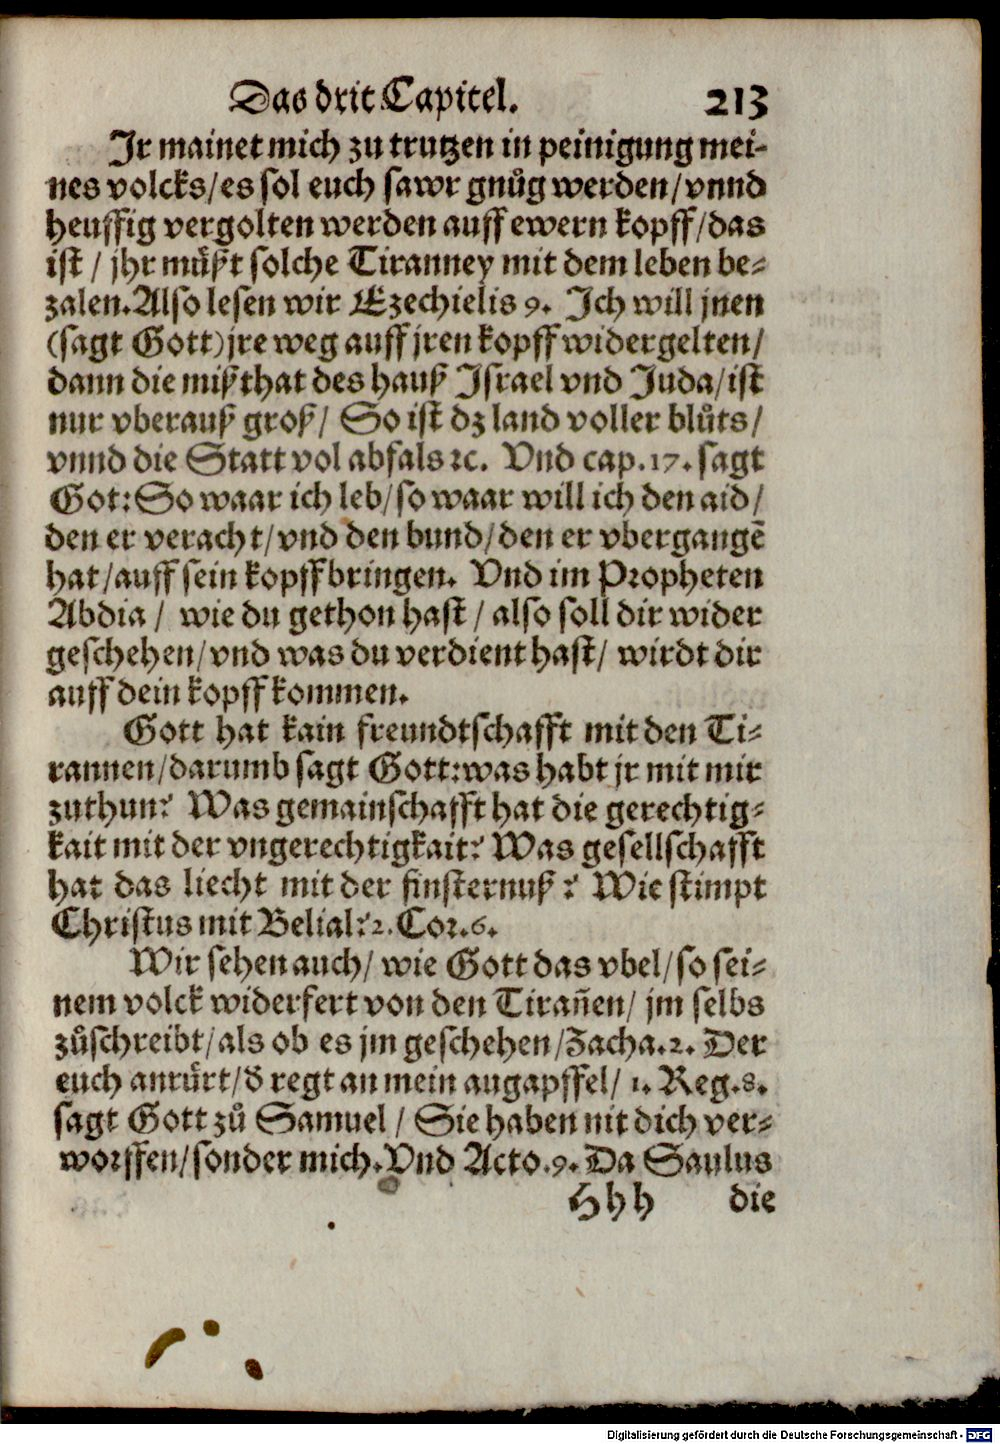 Das drit Capitel. 213
Ir mainet mich zu trutzen in peinigung mei-
nes volcks/es sol euch sawr gnůg werden/vnnd
heuffig vergolten werden auff ewern kopff/das
ist / jhr můßt solche Tiranney mit dem leben be-
zalen.Also lesen wir Ezechielis 9. Ich will jnen
(sagt Gott)jre weg auff jren kopff widergelten/
dann die mißthat des hauß Israel vnd Juda/ist
nur vberauß groß/ So ist dz land voller blůts/
vnnd die Statt vol abfals ꝛc. Vnd cap.17.sagt
Got:So waar ich leb/so waar will ich den aid/
den er veracht/vnd den bund/den er vbergangē
hat/auff sein kopff bringen. Vnd im Propheten
Abdia / wie du gethon hast / also soll dir wider
geschehen/vnd was du verdient hast/ wirdt dir
auff dein kopff kommen.
Gott hat kain freundtschafft mit den Ti-
rannen/darumb sagt Gott:was habt jr mit mir
zuthun? Was gemainschafft hat die gerechtig-
kait mit der vngerechtigkait? Was gesellschafft
hat das liecht mit der finsternuß ? Wie stimpt
Christus mit Belial?2.Cor.6.
Wir sehen auch/ wie Gott das vbel/so sei-
nem volck widerfert von den Tirañen/ jm selbs
zůschreibt/als ob es jm geschehen/Zacha.2. Der
euch anrůrt/d regt an mein augapffel/ 1. Reg.8.
sagt Gott zů Samuel / Sie haben nit dich ver-
worffen/sonder mich.Vnd Acto.9.Da Saulus
Hhh die
Digitalisierung gefördert durch die Deutsche Forschungsgemeinschaft - DFG